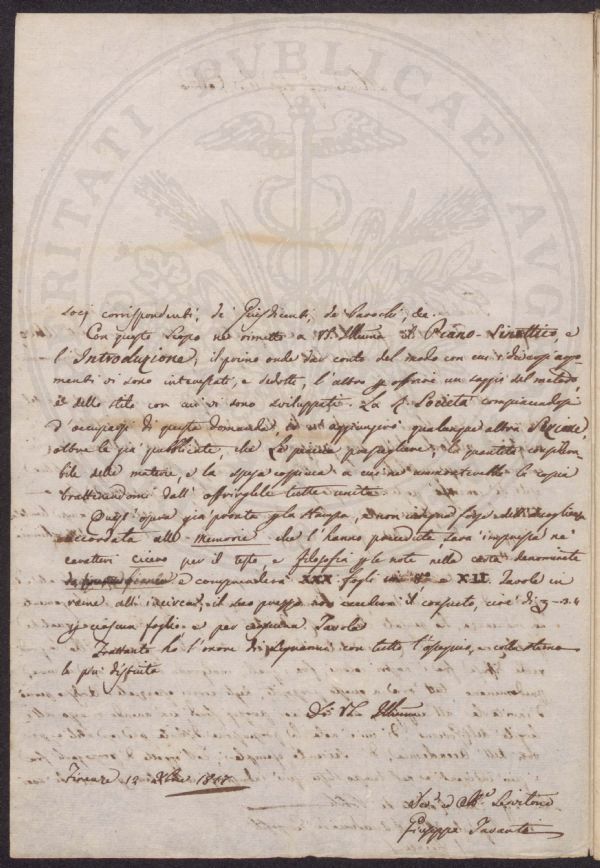 RITATI PVBLICAE AVG
socj corrispondenti, de' Giusdicenti, de' Parochi, &c.
Con questo scopo ne rimetto a VS. Illma il Piano-Sinottico, e
l'Introduzione, il primo onde dar conto del modo con cui i diversi argo-
menti vi sono intavolati, e dedotti, l'altro p offrire un saggio del metodo,
e dello stile con cui vi sono sviluppati. La R. Società compiacendosi
d'occuparsi di questa domanda, ed aggiungervi qualunque altra
oltre le già pubblicate, che Le piaccia la quantità considera-
bile delle materie, e la spesa a cui ne la copia
trattenendomi dall' offrirgliele tutte unite.
Quest' opera già pronta p la stampa, e non indegna forse dell' accoglienza
accordata alle Memorie che l'hanno precedute, sara impressa ne'
caratteri cicero per il testo, e filosofia p le note nella carta denominata
e comprenderà XXX fogli in 8º e XII Tavole in
rame all' incirca, il suo prezzo non eccederà il consueto, cioè di
p ciascun foglio e per ciascuna Tavola
Frattanto ho l'onore di segnarmi con tutto l'ossequio, e colla stima
la più distinta
Di VS. Illma
Firenze 12 Xbre
Devº ed Obº Servitore
Giuseppe Tavanti